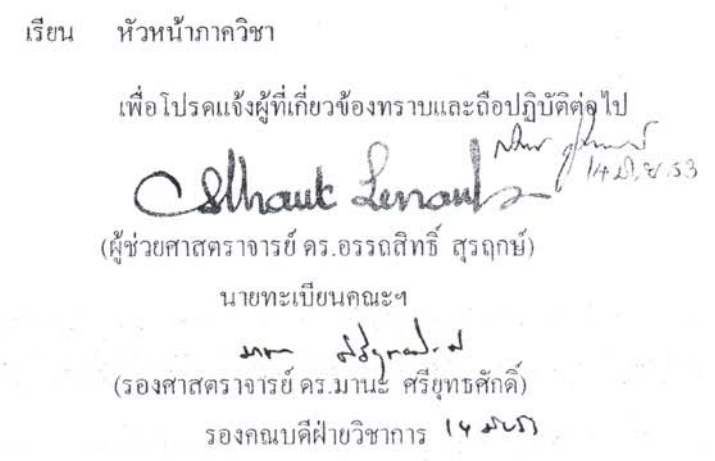 เรียน หัวหน้าภาควิชา
เพื่อโปรดแจ้งผู้ที่เกี่ยวข้องทราบและถือปฏิบัติต่อไป
14 มิ.ย. 53
(ผู้ช่วยศาสตราจารย์ ดร.อรรถสิทธิ์ สุรฤกษ์)
นายทะเบียนคณะฯ
(รองศาสตราจารย์ ดร.มานะ ศรียุทธศักดิ์)
รองคณบดีฝ่ายวิชาการ 14